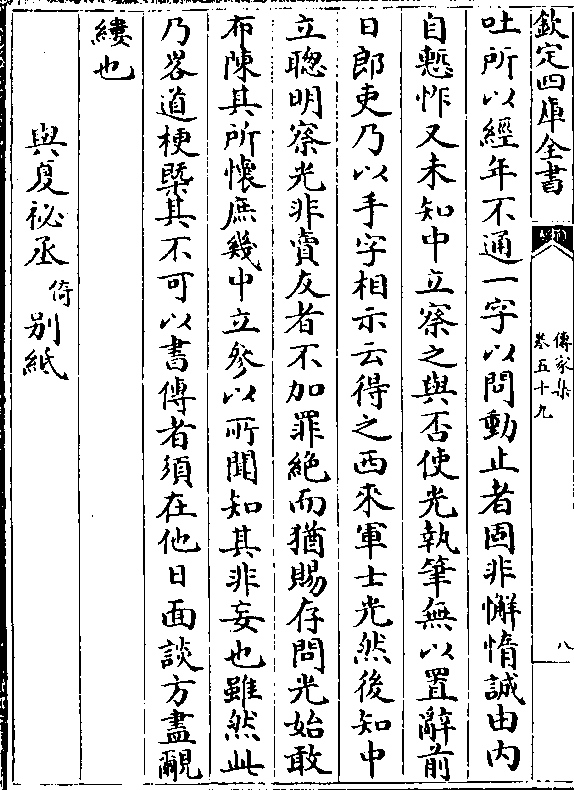 欽定四庫全書
傳家集
卷五十九
八
吐所以經年不通一字以問動止者固非懈惰誠由内
自慙怍又未知中立察之與否使光執筆無以置辭前
日郎吏乃以手字相示云得之西來軍士光然後知中
立聰明察光非賣友者不加罪絶而猶賜存問光始敢
布陳其所懷庶幾中立參以所聞知其非妄也雖然此
乃畧道梗槩其不可以書傳者須在他日面談方盡覼
縷也
與夏祕丞倚别紙